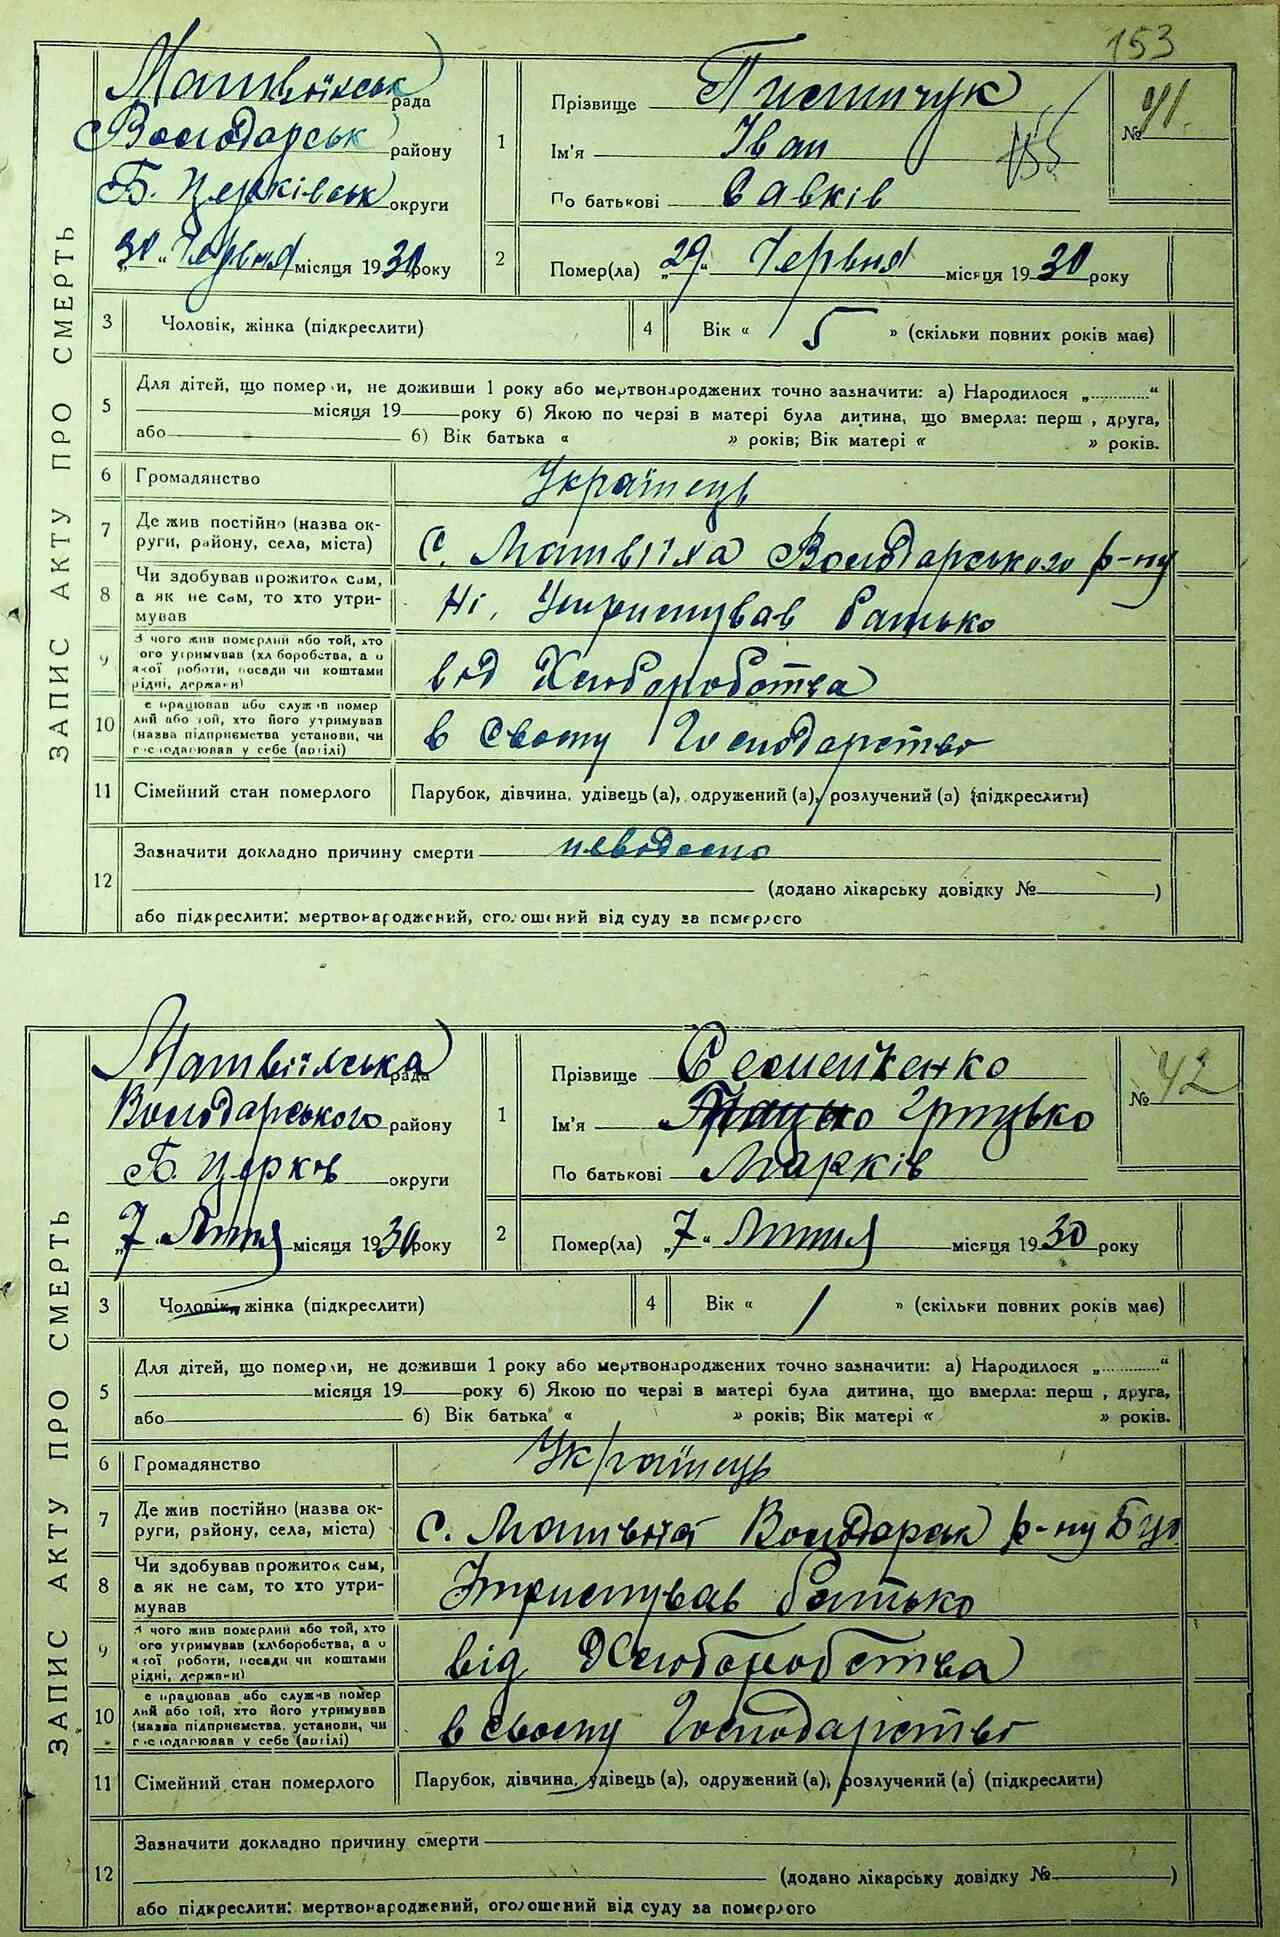 153
ЗАПИС АКТУ ПРО СМЕРТЬ
Матвіїнськ рада
Володарськ району
Б. Церківськ округи
„30“ Червня місяця 1930 року
1
Прізвище
Ім'я Іван
По батькові Савків
№ 41.
155
2
Помер(ла) „29“ Червня місяця 1930 року
3 Чоловік, жінка (підкреслити)
4 Вік « 5 » (скільки повних років має)
5 Для дітей, що померли, не доживши 1 року або мертвонароджених точно зазначити: а) Народилося „............“
місяця 19 року б) Якою по черзі в матері була дитина, що вмерла: перш , друга,
або б) Вік батька « » років; Вік матері « » років.
6 Громадянство Українець
7 Де жив постійно (назва ок-
руги, району, села, міста) С. Матвіїха Володарського р-ну
8 Чи здобував прожиток сам,
а як не сам, то хто утри-
мував Ні, Утримував батько
9 З чого жив померлий або той, хто
ого утримував (хл боробства, а о
якої роботи, посади чи коштами
рідні, держави)
від Хліборобства
10 е працював або служив помер
лий або той, хто його утримував
(назва підприємства установи, чи
господарював у себе (артілі)
в Своєму Господарство
11 Сімейний стан померлого Парубок, дівчина, удівець (а), одружений (а), розлучений (а) (підкреслити)
12 Зазначити докладно причину смерти невідомо
(додано лікарську довідку № )
або підкреслити: мертвонароджений, оголошений від суду за померлого
ЗАПИС АКТУ ПРО СМЕРТЬ
Матвіїнська рада
Володарського району
Б. Церков округи
„7“ Липня місяця 1930 року
1
Прізвище Семейченко
Ім'я Грицько Грицько
По батькові Марків
№ 42
2
Помер(ла) „7“ Липня місяця 1930 року
3 Чоловік, жінка (підкреслити)
4 Вік « 1 » (скільки повних років має)
5 Для дітей, що померли, не доживши 1 року або мертвонароджених точно зазначити: а) Народилося „............“
місяця 19 року б) Якою по черзі в матері була дитина, що вмерла: перш , друга,
або б) Вік батька « » років; Вік матері « » років.
6 Громадянство Українець
7 Де жив постійно (назва ок-
руги, району, села, міста) с. Матвіїха Володарськ р-ну
8 Чи здобував прожиток сам,
а як не сам, то хто утри-
мував Утримував батько
9 З чого жив померлий або той, хто
ого утримував (хл боробства, а о
якої роботи, посади чи коштами
рідні, держави)
від Хліборобства
10 е працював або служив помер
лий або той, хто його утримував
(назва підприємства, установи, чи
господарював у себе (артілі)
в своєму Господарство
11 Сімейний стан померлого Парубок, дівчина, удівець (а), одружений (а), розлучений (а) (підкреслити)
12 Зазначити докладно причину смерти
(додано лікарську довідку № )
або підкреслити: мертвонароджений, оголошений від суду за померлого